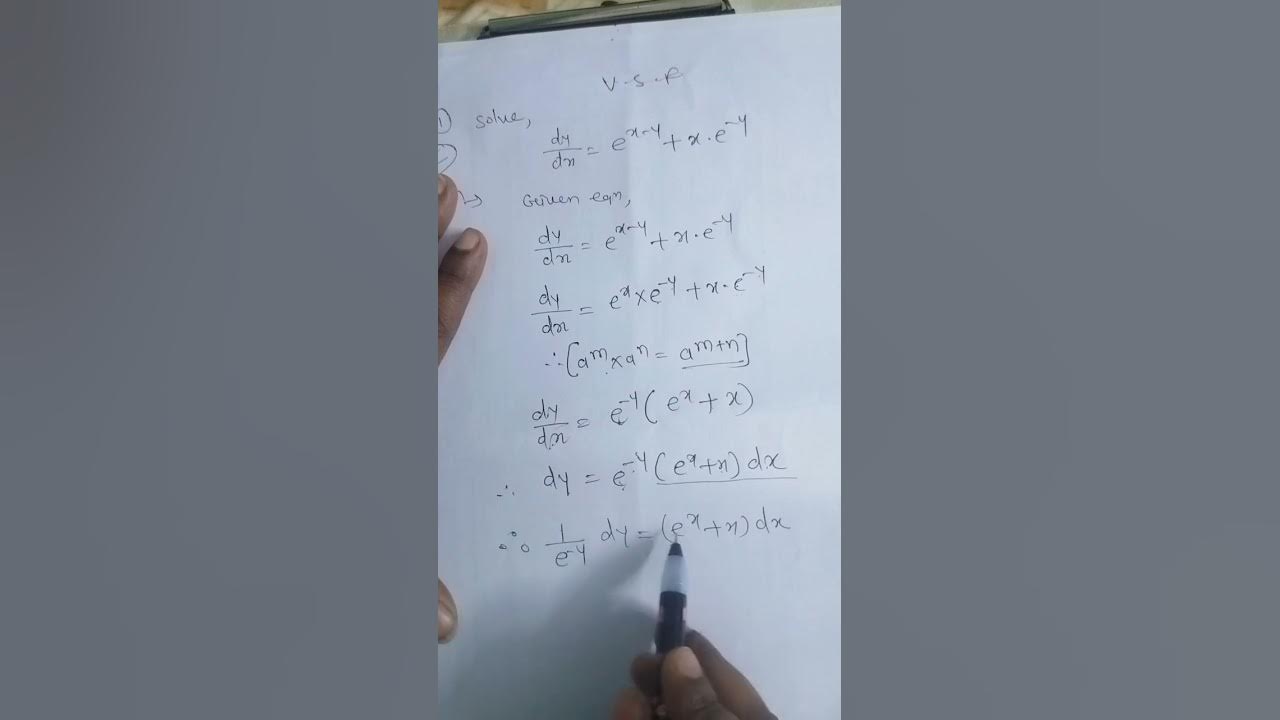 V.S.F
1) solve,
dy/dx = e^{x-y} + x.e^{-y}
→ Given eqn,
dy/dx = e^{x-y} + x.e^{-y}
dy/dx = e^x × e^{-y} + x.e^{-y}
∴ [a^m × a^n = a^{m+n}]
dy/dx = e^{-y}(e^x + x)
∴ dy = e^{-y}(e^x + x) dx
∴ 1/e^{-y} dy = (e^x + x) dx